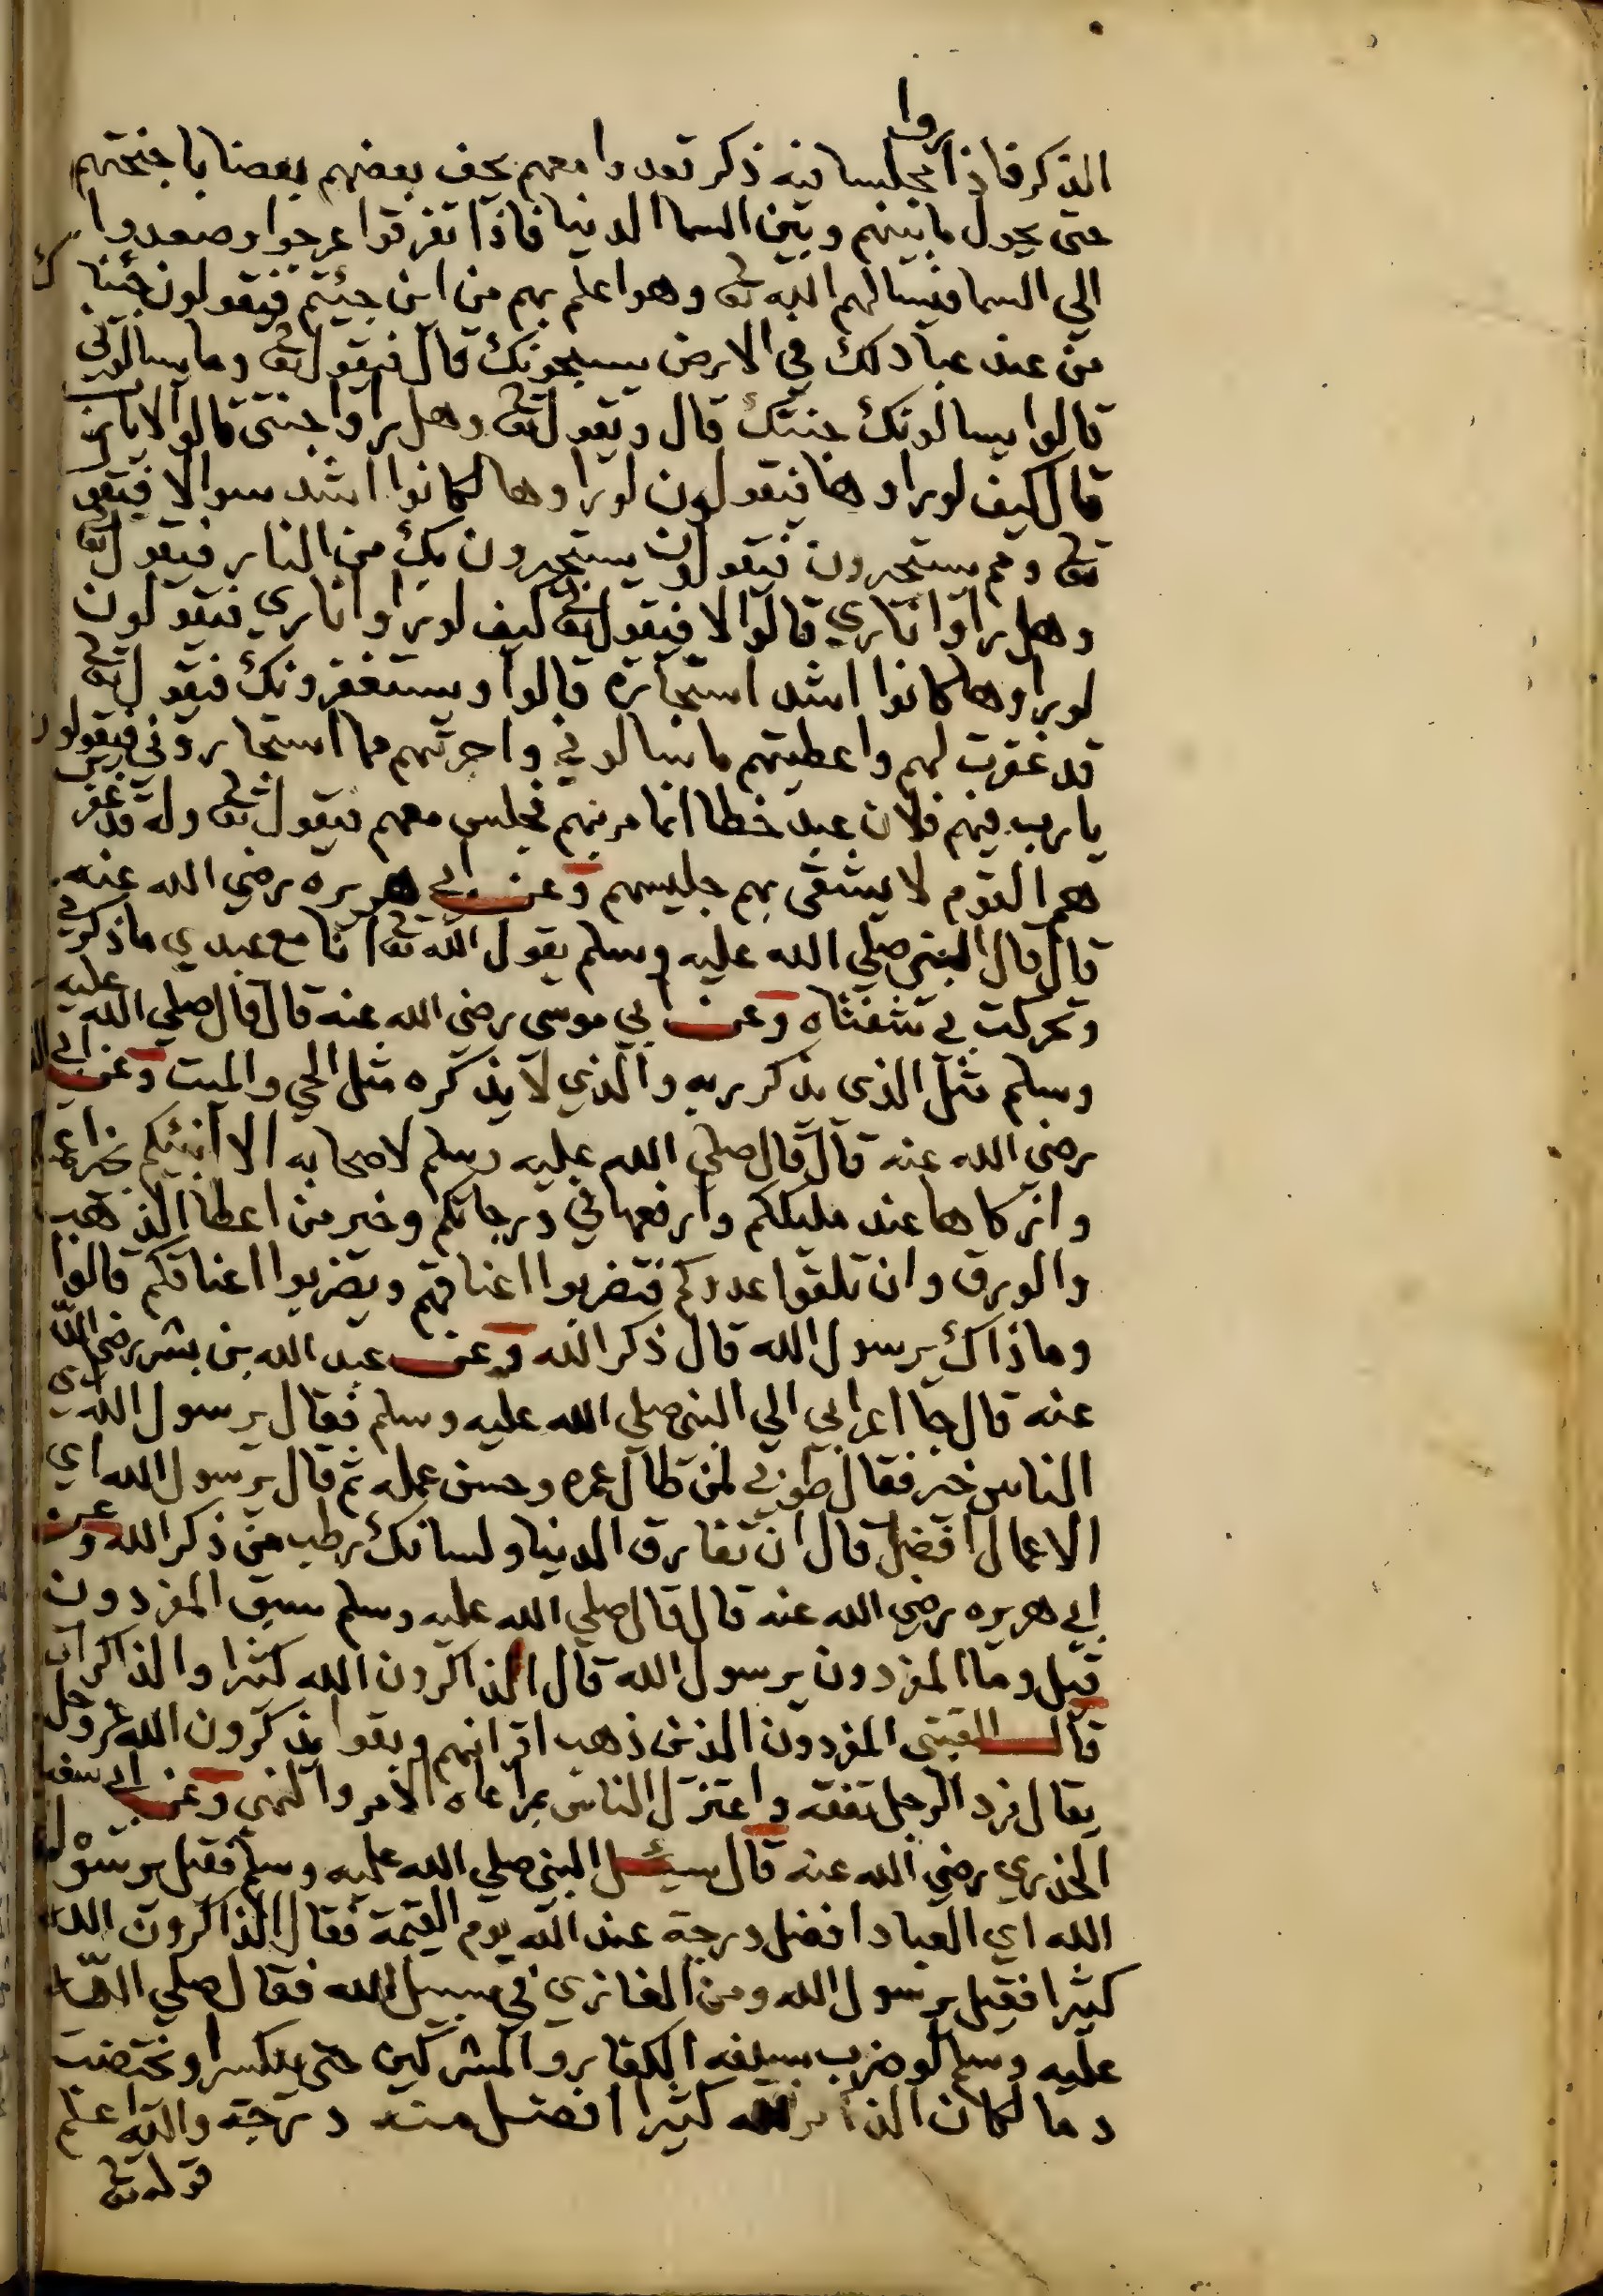 روا
الذكر فاذا مجلسا فيه ذكر قعدوا معهم يحف بعضهم بعضا باجنحتهم
حتى يحول ما بينهم وبين السما الدنيا فاذا تفرقوا عرجوا وصعدوا
الي السما فيسالهم الله تعا وهو اعلم بهم من اين جيئتم فيقولون جئنا ك
من عند عبادلك في الارض يسبحونك قال فيقول تعا وما يسالوني
قالوا يسالونك جنتك قال ويقول تعا وهل راوا جنتي قالوا لا يا رب
قال كيف لوراوها فيقولون لوراوها لكانوا اشد سوالا فيقول
تعا ومم يستجيرون فيقولون يستجيرون بك من النار فيقول تعا
وهل راوا ناري قالوا لا فيقول تعا كيف لوراوا ناري فيقولون
لوراوها كانوا اشد استجارة قالوا ويستغفرونك فيقول تعا
قد غفرت لهم واعطيتهم ما سالوني واجرتهم مما استجاروني فيقولون
يا رب فيهم فلان عبد خطا انما مر بهم فجلس معهم فيقول تعا وله قد غفرت
هم القوم لا يشقى بهم جليسهم وعن ابي هريره رضي الله عنه
قال قال النبي صلي الله عليه وسلم يقول الله تعا انا مع عبدي ما ذكرني
وتحركت بي شفتاه وعن ابي موسى رضي الله عنه قال قال صلي الله عليه
وسلم مثل الذى يذكر ربه والذي لا يذكره مثل الحي والميت وعن ابي
رضي الله عنه قال قال صلي الله عليه وسلم لاصحابه الا انبئكم بخير
وازكاها عند مليككم وارفعها في درجاتكم وخير من اعطا الذهب
والورق وان تلقوا عدوكم فتضربوا اعناقهم ويضربوا اعناقكم قالوا
وما ذاك يرسول الله قال ذكر الله وعن عبد الله بن بشر رضي الله
عنه قال جا اعرابي الي النبي صلي الله عليه وسلم فقال يرسول الله اي
الناس خير فقال طوبي لمن طال عمره وحسن عمله ثم قال يرسول الله اي
الاعمال افضل قال ان تفارق الدنيا ولسانك رطب من ذكر الله وعن
ابي هريره رضي الله عنه قال قال صلي الله عليه وسلم سبق المفردون
قيل وما المفردون يرسول الله قال الذاكرون الله كثيرا والذاكرات
قال القتبى المفردون الذين ذهب اقرانهم وبقوا يذكرون الله عز وجل
يقال فرد الرجل تفقه واعتزل الناس بمراعاه الامر والنهي وعن ابي سعيد
الخذري رضي الله عنه قال سيئل النبي صلي الله عليه وسلم فقيل يرسول
الله اي العباد افضل درجة عند الله يوم القيمة فقال الذاكرون الله
كثيرا فقيل يرسول الله ومن الغازي في سبيل الله فقال صلي الله
عليه وسلم لو ضرب بسيفه الكفار والمشركين حتى ينكسر او تختضب
دما لكان الذاكر الله كثيرا افضل منه درجة والله اعلم
قوله تعا